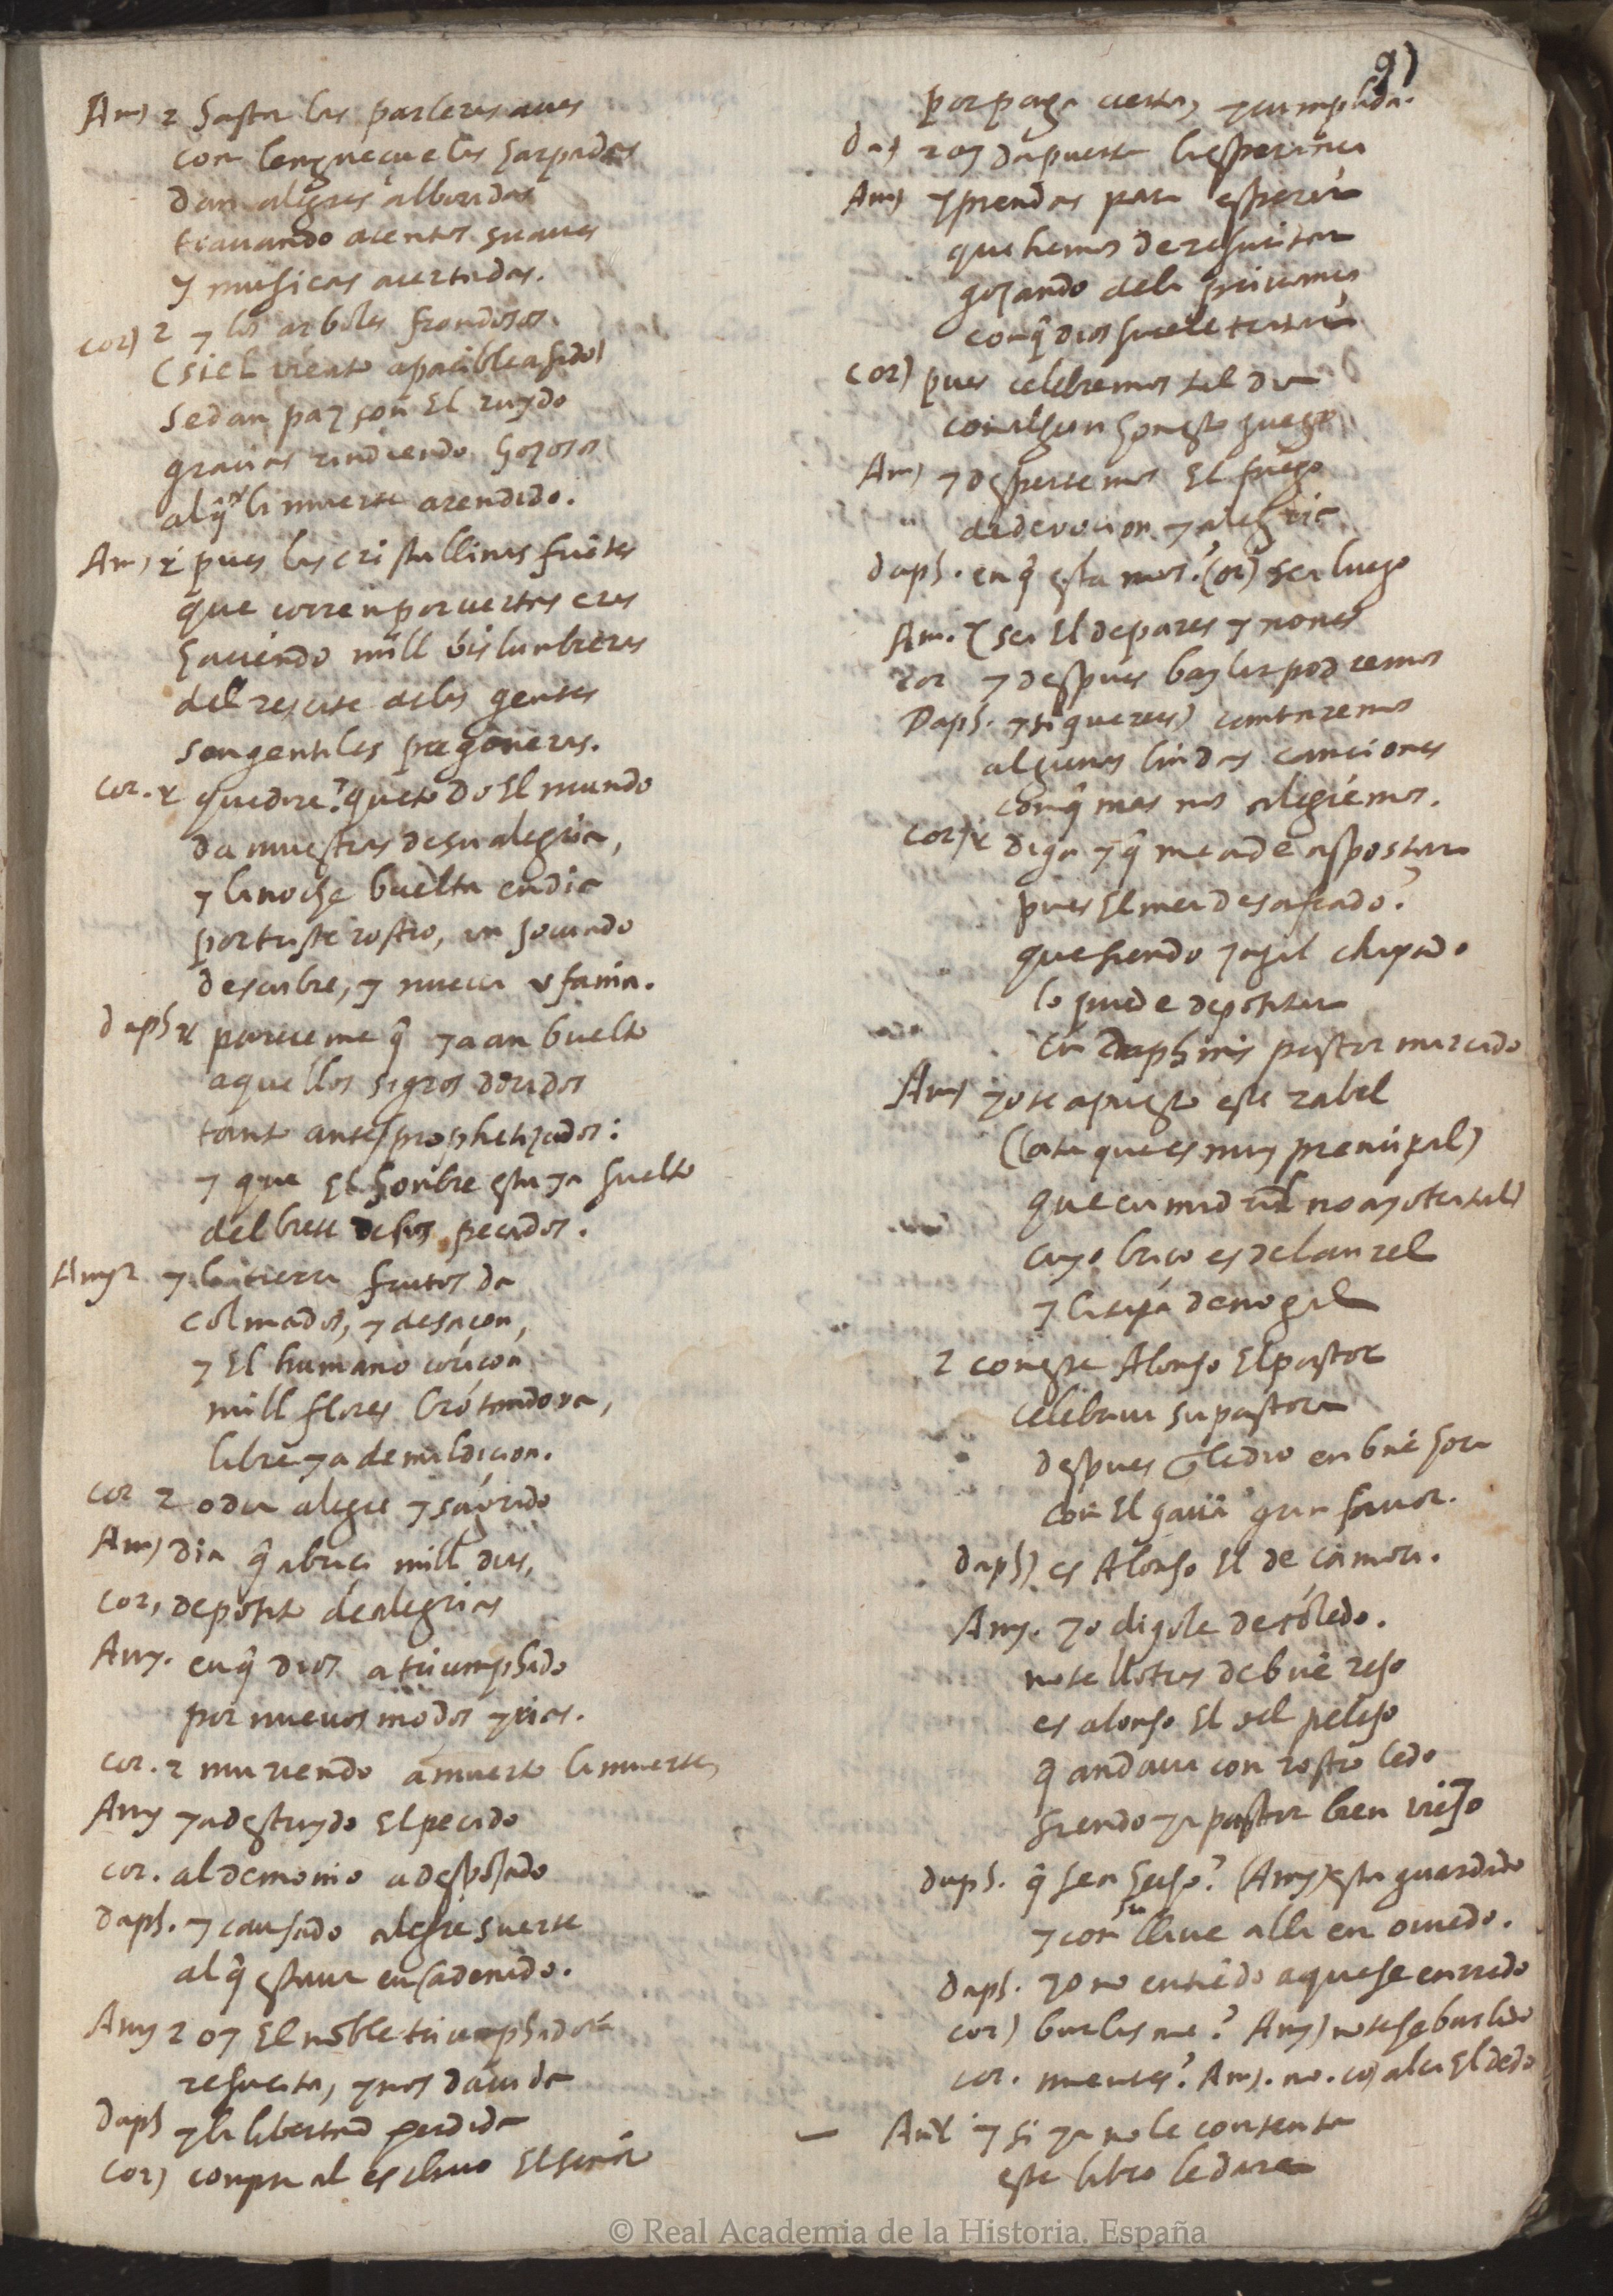 91
Am) 2 hasta las parleras aues
con lenguequelas harpadas
dan alegres alboradas
trauando acentos suaues
y musicas acertadas.
cor) 2 y los arboles frondosos
(si el viento apacible a sido)
se dan paz con El ruydo
gracias rindiendo gozosos
al q̃ la muerte a rendido.
Am) 2 pues las cristallinas fuẽtes
que corren por uertas eras
haciendo mill vislumbreras
del rescate de las gentes
son gentiles pregoneras.
cor. 2 que dire? que todo El mundo
da muestras de su alegria,
y la noche buelta en dia
por triste rostro, un jocundo
descubre, y nueua vfania.
daph 2 pareceme q̃ ya an buelto
aquellos sigros dorados
tanto antes prophetizados:
y que El hombre esta ya suelto
del brete de sus pecados.
Amy 2 y la tierra frutos da
colmados, y de saçon,
y El humano coraçon
mill flores brotando va,
libre ya de maldicion.
cor 2 o dia alegre y saborido
Am) dia q̃ abraca mill dias,
cor, deposito de alegrias
Amy. en q̃ dios a triumphado
por nueuos modos y vias.
cor. 2 muriendo a muerto la muerte,
Amy y a destruydo El pecado
cor. al demonio a despojado
daph. y causado alegre suerte
al q̃ estaua encadenado.
Amy 2 oy El noble triumphador
resucita, y nos da uida
Daph y la libertad perdida
Cor) compra al esclauo El señor
por paga cierta, y cumplida.
Da) 2 oy da puerta la esperança
Am) y prendas para esperar
que hemos de resucitar
gozando de la priuança
con q̃ dios suele tratar
cor) pues celebremos tal dia
con algun honesto juego
Am) y despertemos El fuego
de deuocion y alegria
daph. en q̃ estamos? Cor) sea luego
Am. 2 sea El de pares y nones
cor y despues baylar podremos
Daph. y si quereis) cantaremos
algunas lindas canciones
con q̃ mas nos alegremos.
cor) 2 diga y q̃ me a de apostar
pues El me a desafiado?
que siendo zagal chapado
lo puede depositar
Cõ Daphnis pastor marcado
Am) yo te apuesto este rabel
(cata que es muy prencipal)
que en madrid no ay otra tal
cuyo braço es de laurel
y la tapa de nogal
2 con este Alonso El pastor
celebraua su pastora
despues q̃ le dio en buẽ hora
con El gauã gran fauor.
daph) es Alonso El de camora.
Amy. yo digole de tóledo.
no te llotras de buẽ rejo
es alonso El del pelejo
q̃ andaua con rostro ledo
siendo ya pastor bien viejo
daph. q̃ se a hecho? (Amy) esta guardado
y con su llaue alla en ouiedo.
Daph. yo no entiẽdo aquese enrredo
cor) burlasme? Amy) no te he burlado
cor. mientes? Am). no. co) alça El dedo
Am 2 y si ya no le contenta
este libro le dare
© Real Academia de la Historia. España